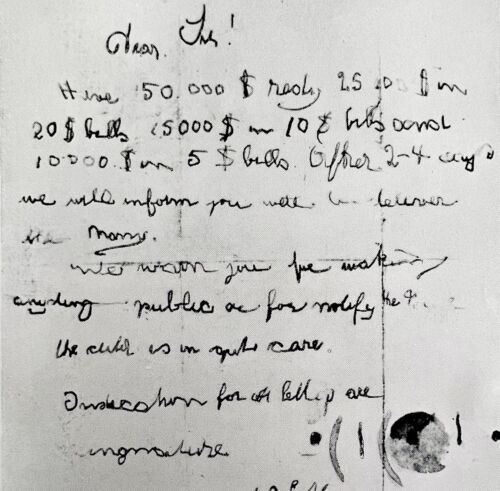 Dear Sir!
Have 50.000 $ redy 25 00 $ in
20 $ bills 15000 $ in 10 $ bills and
10000 $ in 5 $ bills After 2-4 days
we will inform you were to deliver
the Mony.
warn you for making
anyding public or for notify the
the child is in gut care.
Indication for all are
singnature